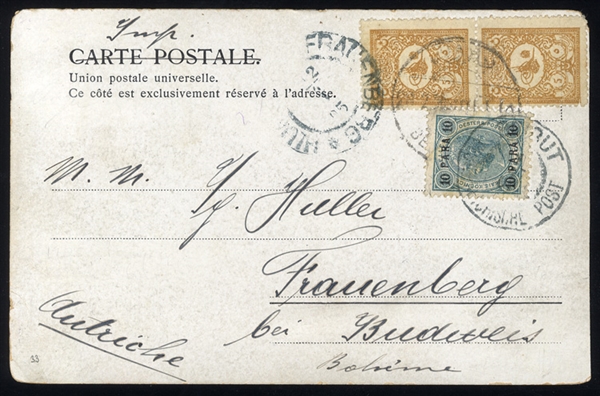 Imp.
CARTE POSTALE.
Union postale universelle.
Ce côté est exclusivement réservé à l'adresse.
FRAUENBERG
10 PARA 10
10 PARA 10
POST
M. M.
Huller
Frauenberg
bei Budweis
Autriche
Bohême
33